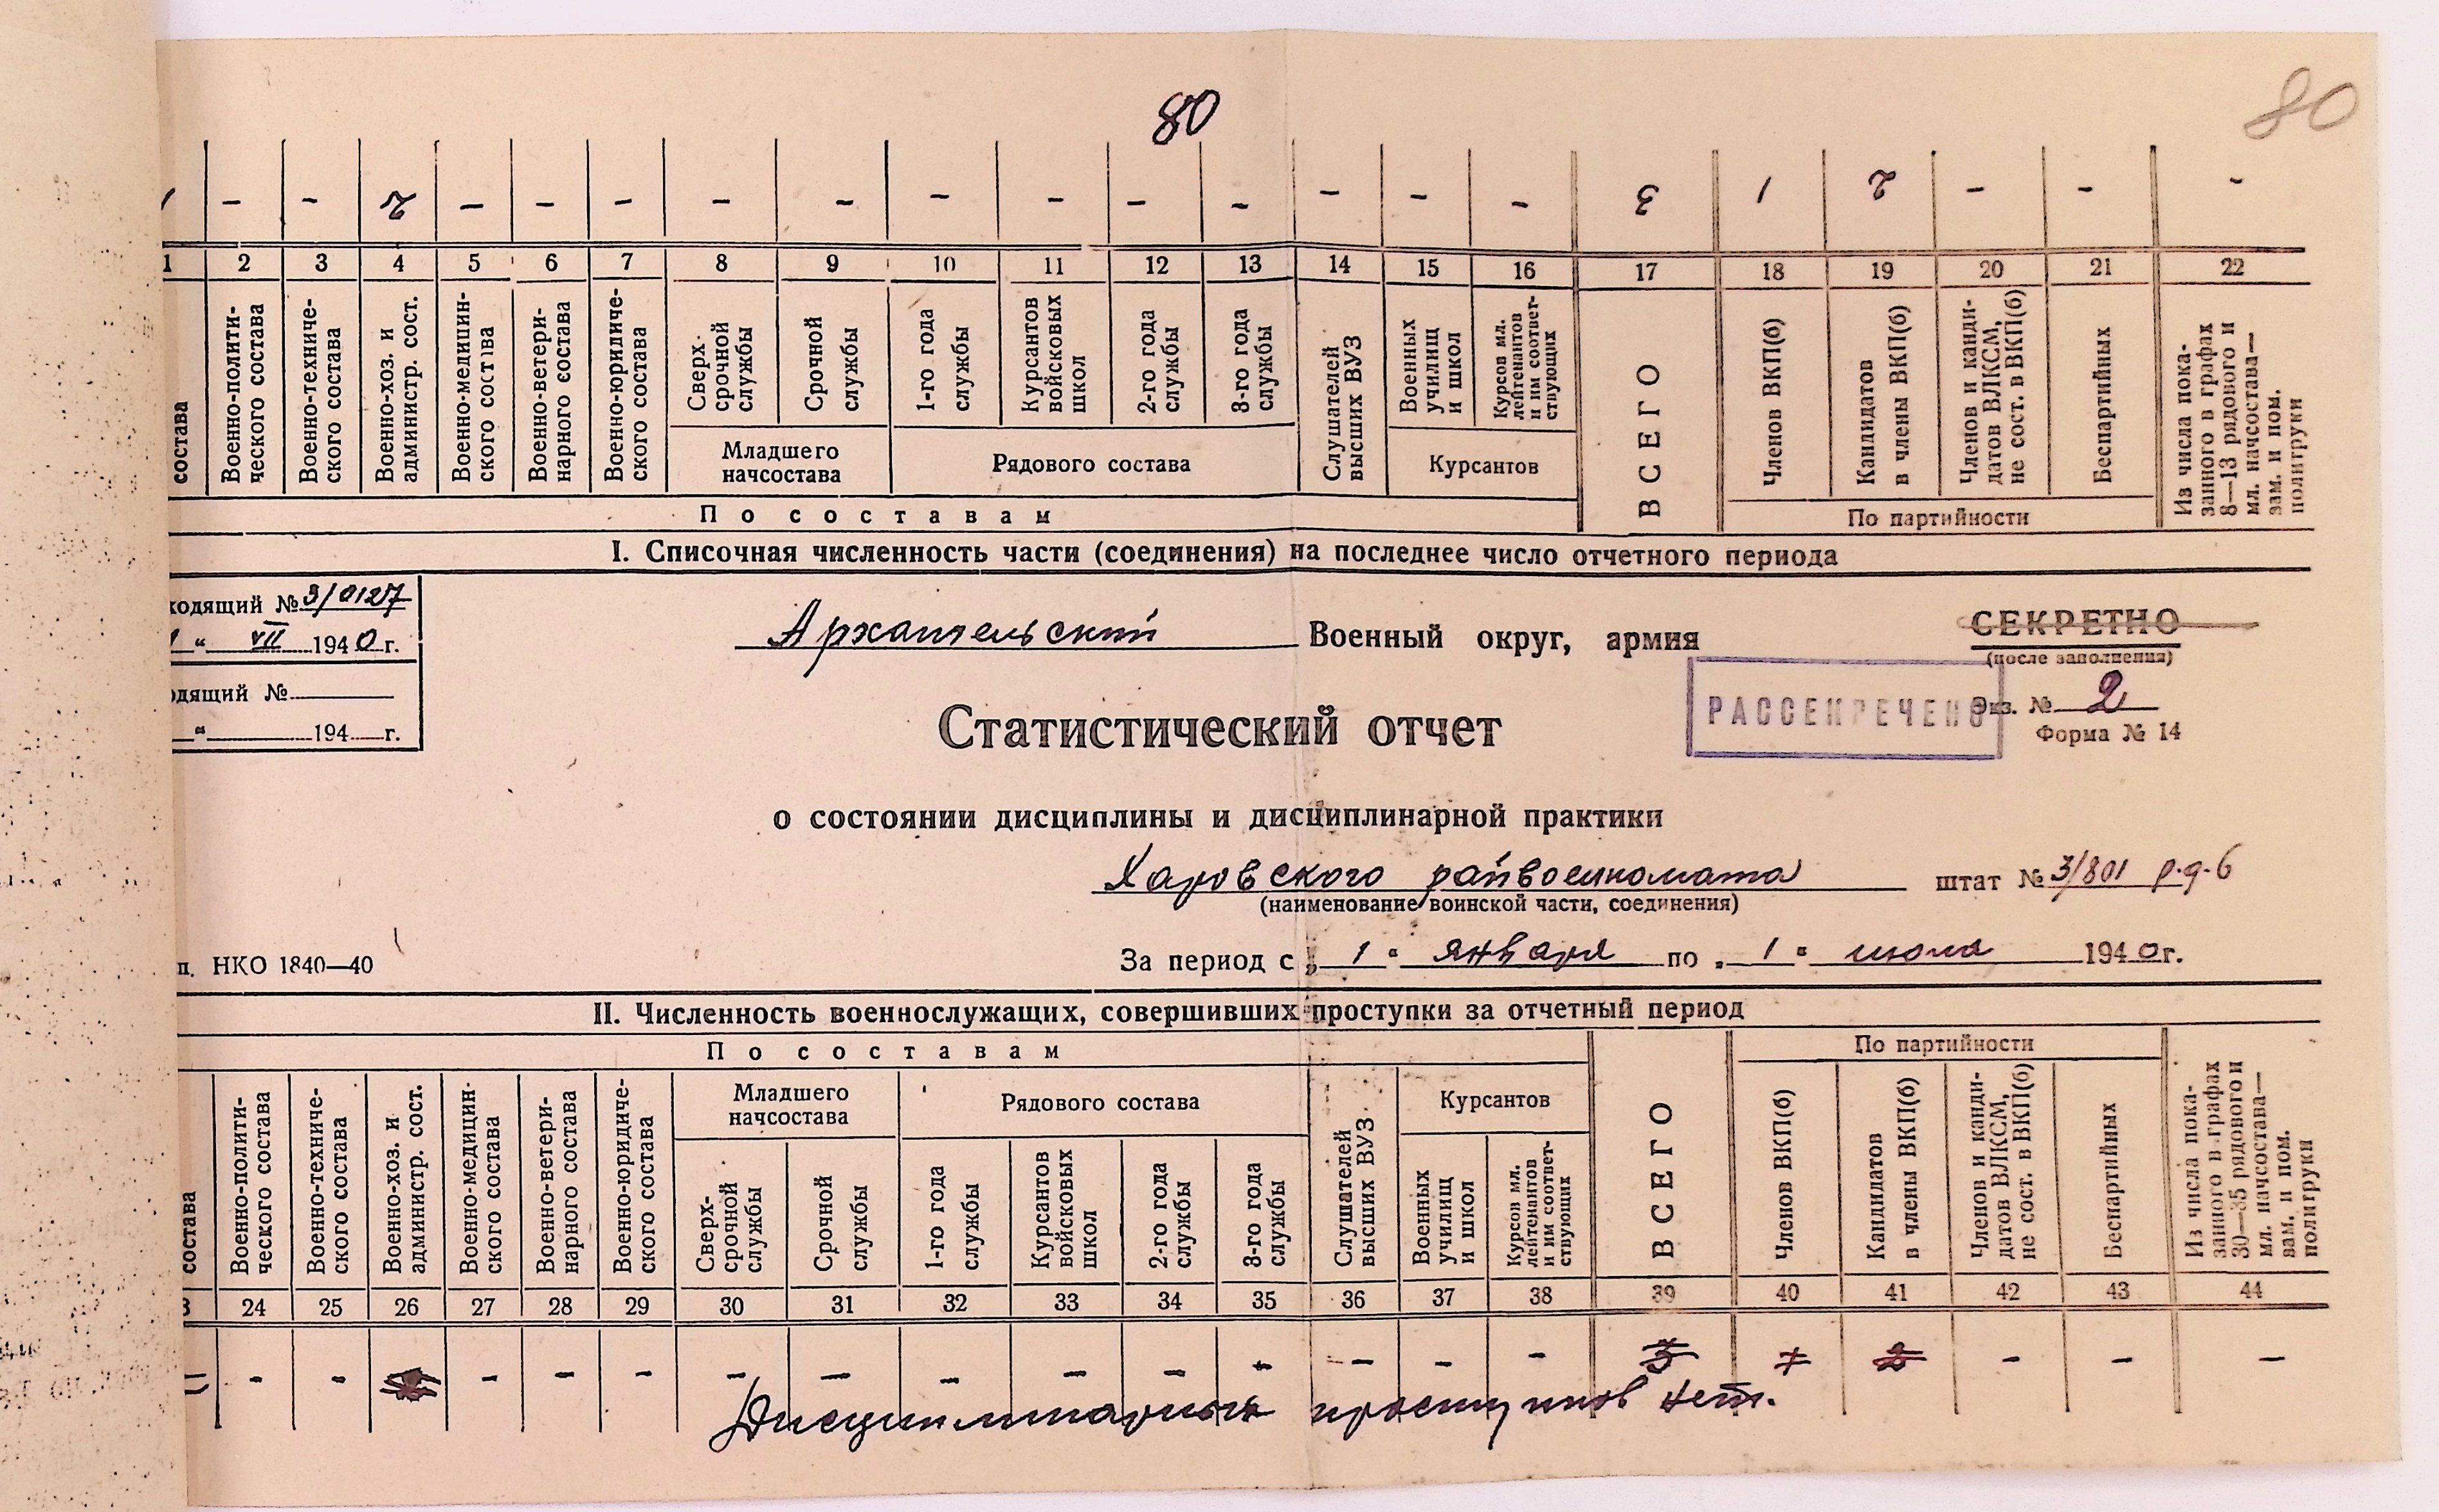 80
80
1 - - 2 - - - - - - - - - - - - 3 1 2 - - -
1 2 3 4 5 6 7 8 9 10 11 12 13 14 15 16 17 18 19 20 21 22
состава
Военно-полити-
ческого состава
Военно-техниче-
ского состава
Военно-хоз. и
администр. сост.
Военно-медицин-
ского состава
Военно-ветери-
нарного состава
Военно-юридиче-
ского состава
Сверх-
срочной
службы
Срочной
службы
1-го года
службы
Курсантов
войсковых
школ
2-го года
службы
3-го года
службы
Слушателей
высших ВУЗ
Военных
училищ
и школ
Курсов мл.
лейтенантов
и им соответ-
ствующих
ВСЕГО
Членов ВКП(б)
Кандидатов
в члены ВКП(б)
Членов и канди-
датов ВЛКСМ,
не сост. в ВКП(б)
Беспартийных
Из числа пока-
занного в графах
8—13 рядового и
мл. начсостава—
зам. и пом.
политруки
Младшего
начсостава
Рядового состава
Курсантов
По составам
По партийности
I. Списочная численность части (соединения) на последнее число отчетного периода
ходящий № 3/0127
" VII 1940 г.
одящий №
" 194 г.
Архангельский Военный округ, армия
СЕКРЕТНО
(после заполнения)
РАССЕКРЕЧЕНО
Экз. № 2
Форма № 14
Статистический отчет
о состоянии дисциплины и дисциплинарной практики
Харовского райвоенкомата штат № 3/801 р.д.б
(наименование воинской части, соединения)
п. НКО 1840—40
За период с „1" января по „1" июля 1940 г.
II. Численность военнослужащих, совершивших проступки за отчетный период
По составам
По партийности
Младшего
начсостава
Рядового состава
Курсантов
состава
Военно-полити-
ческого состава
Военно-техниче-
ского состава
Военно-хоз. и
администр. сост.
Военно-медицин-
ского состава
Военно-ветери-
нарного состава
Военно-юридиче-
ского состава
Сверх-
срочной
службы
Срочной
службы
1-го года
службы
Курсантов
войсковых
школ
2-го года
службы
3-го года
службы
Слушателей
высших ВУЗ
Военных
училищ
и школ
Курсов мл.
лейтенантов
и им соответ-
ствующих
ВСЕГО
Членов ВКП(б)
Кандидатов
в члены ВКП(б)
Членов и канди-
датов ВЛКСМ,
не сост. в ВКП(б)
Беспартийных
Из числа пока-
занного в графах
30—35 рядового и
мл. начсостава—
зам. и пом.
политруки
3 24 25 26 27 28 29 30 31 32 33 34 35 36 37 38 39 40 41 42 43 44
- - - - - - - - - - - - - - - 3 1 2 - - -
Дисциплинарных проступков нет.